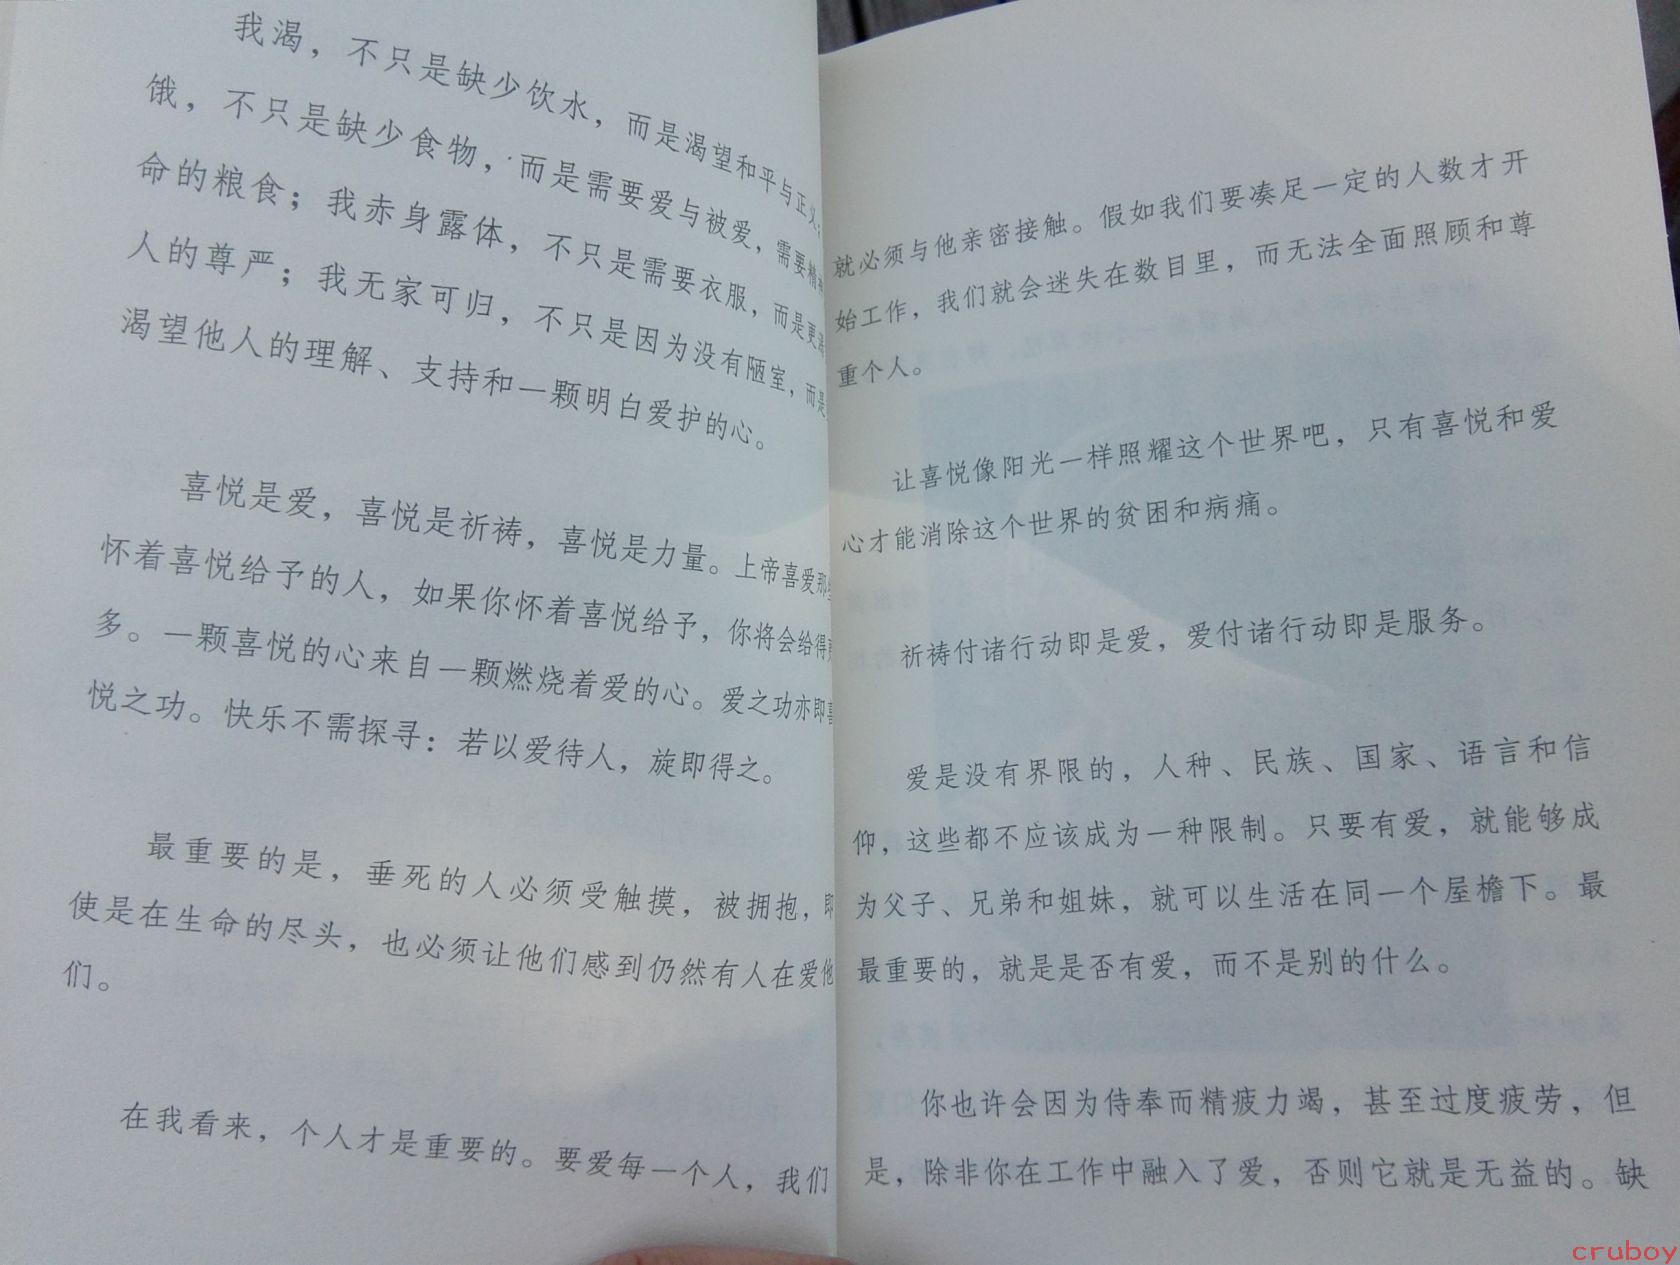 我渴，不只是缺少饮水，而是渴望和平与正义；
饿，不只是缺少食物，而是需要爱与被爱，需要精
命的粮食；我赤身露体，不只是需要衣服，而是更
人的尊严；我无家可归，不只是因为没有陋室，而是
渴望他人的理解、支持和一颗明白爱护的心。
喜悦是爱，喜悦是祈祷，喜悦是力量。上帝喜爱那
怀着喜悦给予的人，如果你怀着喜悦给予，你将会给得
多。一颗喜悦的心来自一颗燃烧着爱的心。爱之功亦即喜
悦之功。快乐不需探寻：若以爱待人，旋即得之。
最重要的是，垂死的人必须受触摸，被拥抱，即
使是在生命的尽头，也必须让他们感到仍然有人在爱他
们。
在我看来，个人才是重要的。要爱每一个人，我们
就必须与他亲密接触。假如我们要凑足一定的人数才开
始工作，我们就会迷失在数目里，而无法全面照顾和尊
重个人。
让喜悦像阳光一样照耀这个世界吧，只有喜悦和爱
心才能消除这个世界的贫困和病痛。
祈祷付诸行动即是爱，爱付诸行动即是服务。
爱是没有界限的，人种、民族、国家、语言和信
仰，这些都不应该成为一种限制。只要有爱，就能够成
为父子、兄弟和姐妹，就可以生活在同一个屋檐下。最
最重要的，就是是否有爱，而不是别的什么。
你也许会因为侍奉而精疲力竭，甚至过度疲劳，但
是，除非你在工作中融入了爱，否则它就是无益的。缺
cruboy